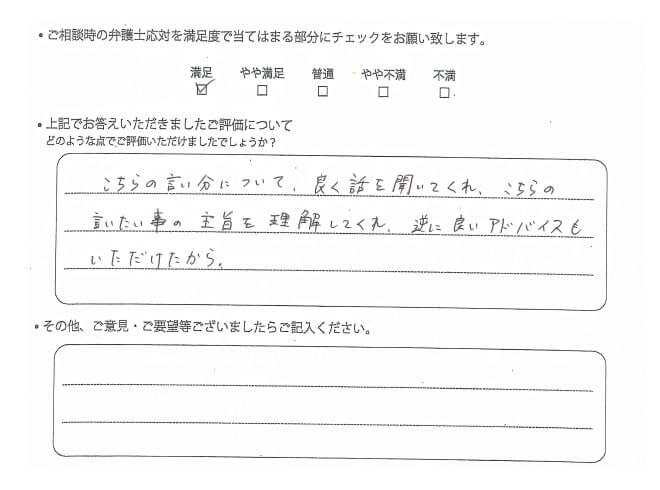 •ご相談時の弁護士応対を満足度で当てはまる部分にチェックをお願い致します。
満足 やや満足 普通 やや不満 不満
☑ □ □ □ □
•上記でお答えいただきましたご評価について
どのような点でご評価いただけましたでしょうか？
こちらの言い分について、良く話を聞いてくれ、こちらの
言いたい事の主旨を理解してくれ、逆に良いアドバイスも
いただけたから。
•その他、ご意見・ご要望等ございましたらご記入ください。